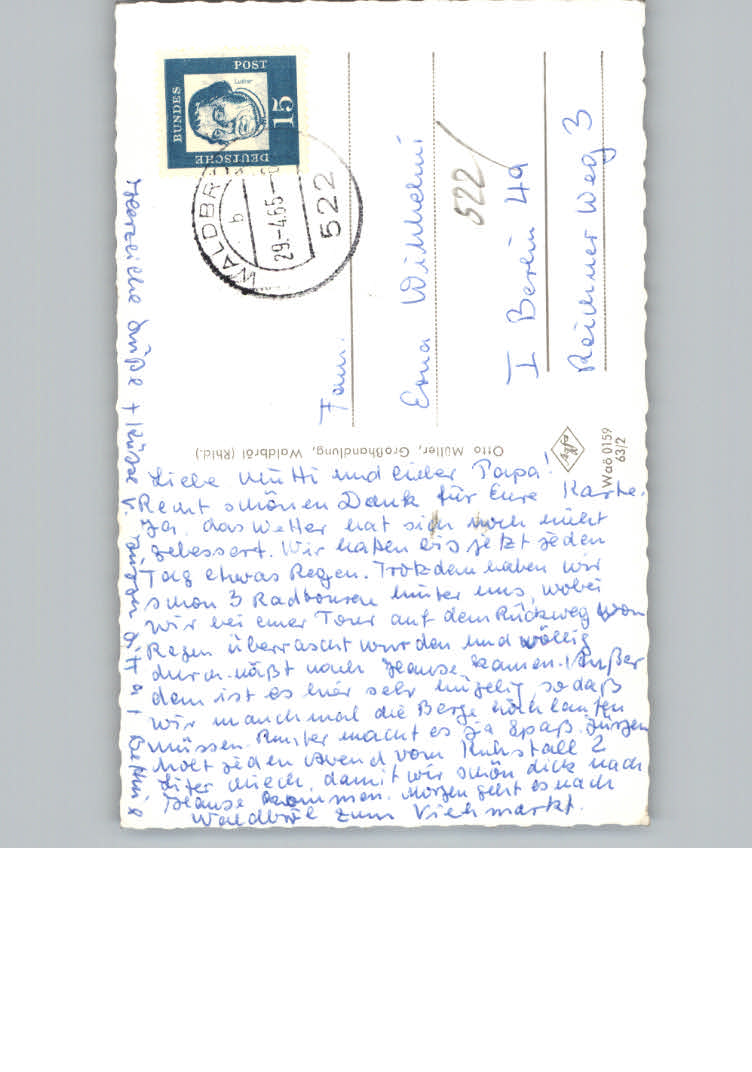 Liebe Mutti und lieber Papa!
Recht schönen Dank für Eure Karte.
Ja, das Wetter hat sich noch nicht
gebessert. Wir hatten bis jetzt jeden
Tag etwas Regen. Trotzdem haben wir
schon 3 Radtouren hinter uns, wobei
wir bei einer Tour auf dem Rückweg von
Regen überrascht wurden und völlig
durchnäßt nach Hause kamen. Außer
dem ist es hier sehr hügelig, so daß
wir manchmal die Berge hoch laufen
müssen. Runter macht es ja Spaß. Jürgen
holt jeden Abend vom Kuhstall 2
Liter Milch, damit wir schön dick nach
Hause kommen. Morgen geht es nach
Waldbröl zum Viehmarkt.
Herzliche Grüße + Küsse v. Jürgen
DEUTSCHE
BUNDES
POST
15
Luther
WALDBR
b
29.-4.65
522
Fam.
Erna Wilhelmi
522
I Berlin 49
Reichner Weg 3
Otto Müller, Großhandlung, Waldbröl (Rhld.)
Agfa
Waö 0159
63/2